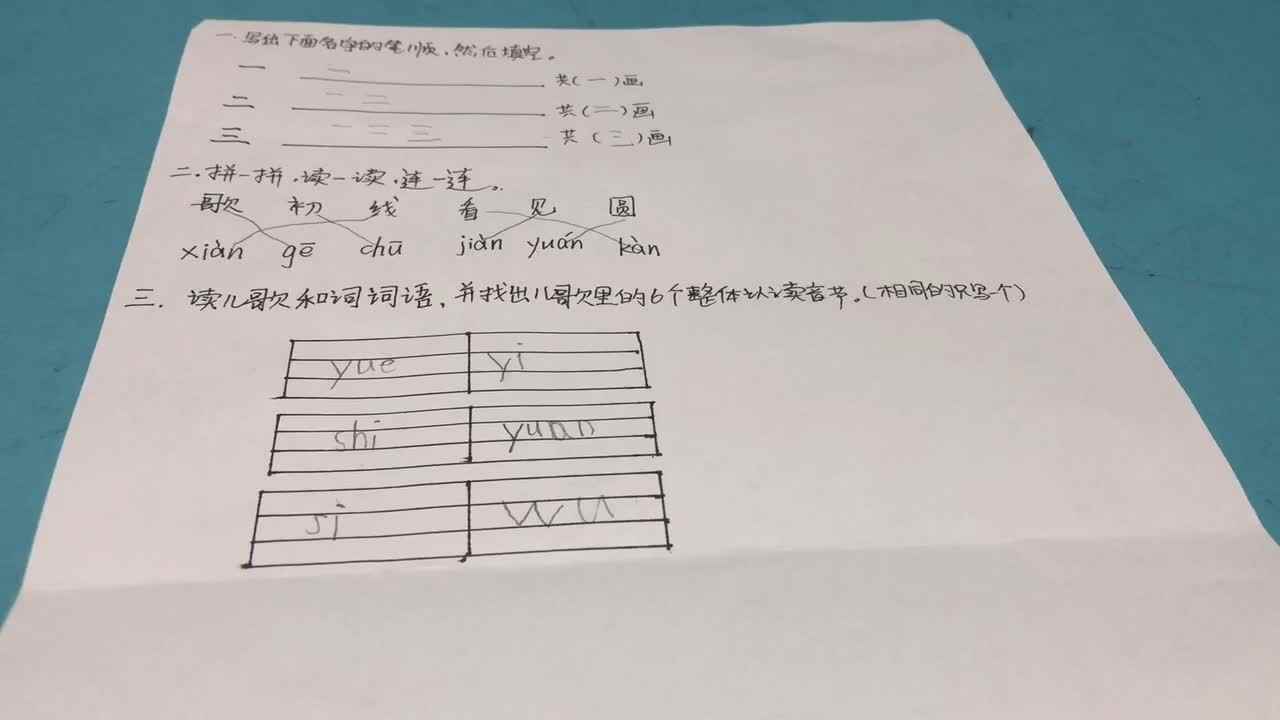 一.写出下面各字的笔顺,然后填空。
一 一 共(一)画
二 一 二 共(二)画
三 一 二 三 共(三)画
二.拼一拼.读一读.连一连。
歌 初 线 看 见 圆
xiàn gē chū jiàn yuán kàn
三.读儿歌和词词语,并找出儿歌里的6个整体认读音节。(相同的只写一个)
yue yi
shi yuan
si wu